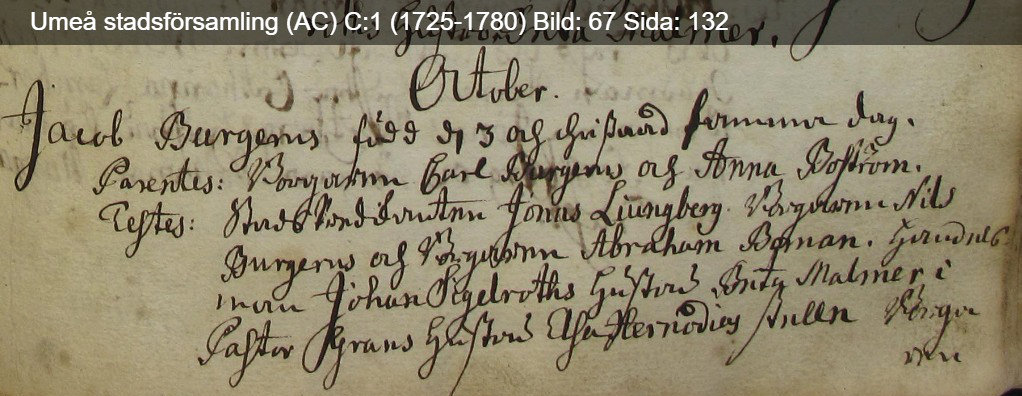 Umeå stadsförsamling (AC) C:1 (1725-1780) Bild: 67 Sida: 132
Hustro Brita Malmer.
October.
Jacob Burgerus född d 3 och christnad samma dag.
Parentes: Borgaren Carl Burgerus och Anna Boström.
Testes: Stads Jonas Liungberg. Borgaren Nils
Burgerus och Borgaren Abraham Boman. Handels-
man Johan Sigelroths Hustru Brita Malmer i
Pastor Grans Hustru Elsa Hernodia Borga
ren